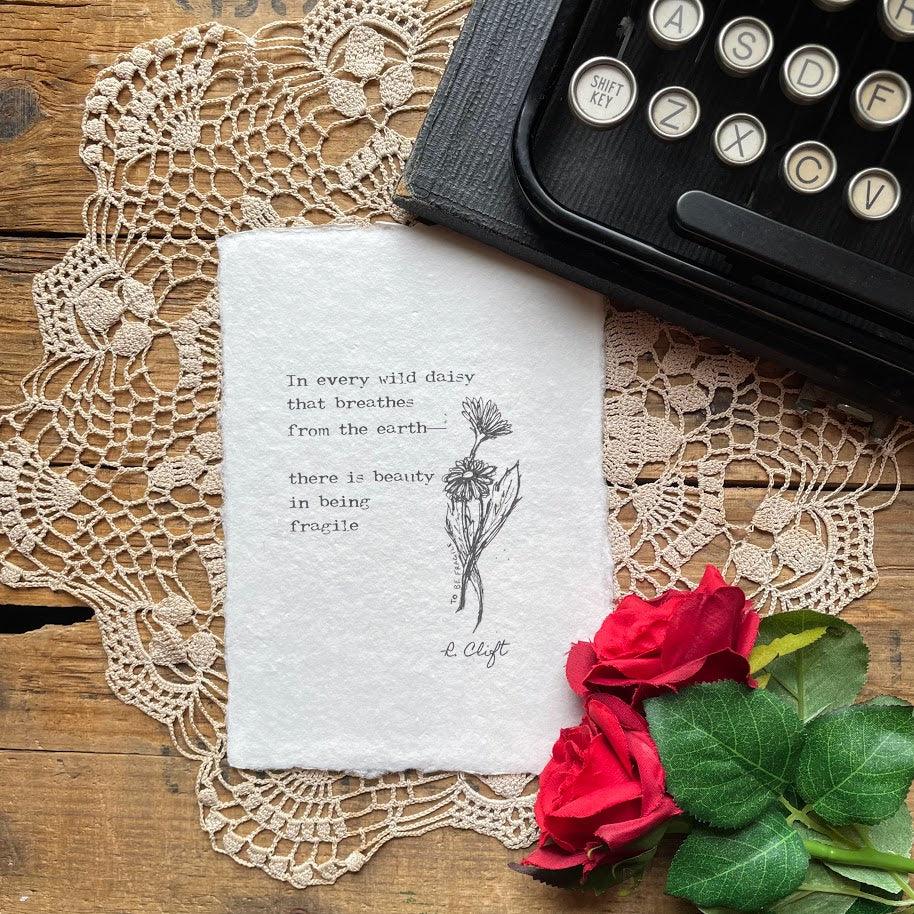 A
S
D
F
SHIFT
KEY
Z
X
C
V
In every wild daisy
that breathes
from the earth—
there is beauty
in being
fragile
TO BE FRAGILE
R. Clift